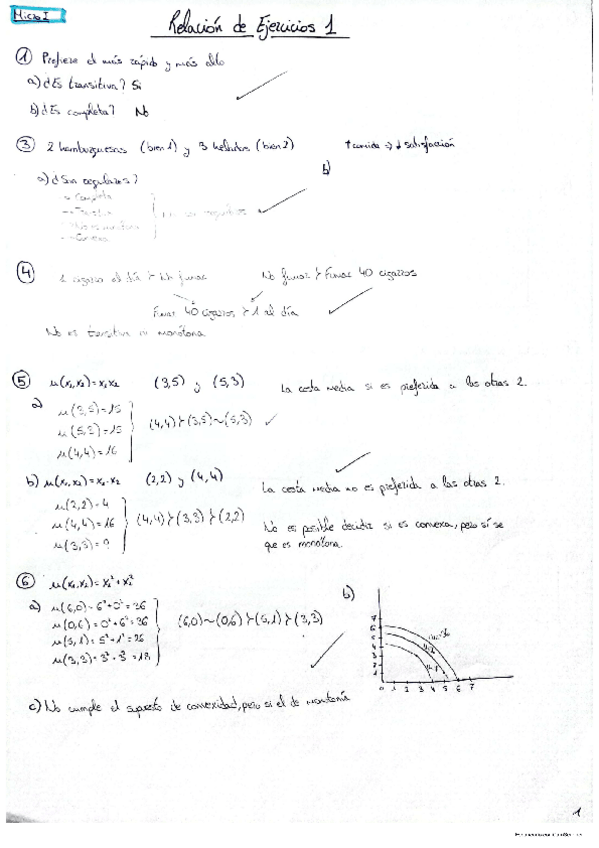 Micro I
Relación de Ejercicios 1
① Prefiere el más rápido y más alto
a) ¿Es transitiva? Si
b) ¿Es completa? No
③ 2 hamburguesas (bien 1) y 3 helados (bien 2) ↑comida → ↓ satisfacción
b)
a) ¿Son regulares?
→ Completa
→ Transitiva
→ No es monótona
→ Convexa
no son regulares
④ 1 cigarro al día ≻ no fumar No fumar ≻ Fumar 40 cigarros
Fumar 40 cigarros ≻ 1 al día
No es transitiva ni monótona
⑤ u(x₁,x₂)=x₁x₂ (3,5) y (5,3) La cesta media si es preferida a las otras 2.
a) u(3,5)=15
u(5,3)=15
u(4,4)=16
(4,4)≻(3,5)∼(5,3)
b) u(x₁,x₂)=x₁·x₂ (2,2) y (4,4) La cesta media no es preferida a las otras 2.
u(2,2)=4
u(4,4)=16
u(3,3)=9
(4,4)≻(3,3)≻(2,2)
No es posible decidir si es convexa, pero sí se
que es monótona.
⑥ u(x₁,x₂)=x₁²+x₂²
a) u(6,0)=6²+0²=36
u(0,6)=0²+6²=36
u(5,1)=5²+1²=26
u(3,3)=3²+3²=18
(6,0)∼(0,6)≻(5,1)≻(3,3)
b)
0 1 2 3 4 5 6 7
c) No cumple el supuesto de convexidad, pero si el de monotonía
1